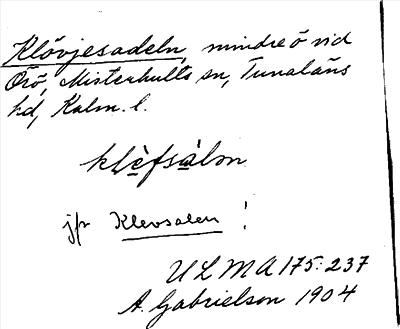 Klövjesadeln, mindre ö vid
Örö, Misterhults sn, Tunaläns
hd, Kalm. l.
klèfsàlon
jfr Klevsalen !
ULMA 175:237
A. Gabrielson 1904